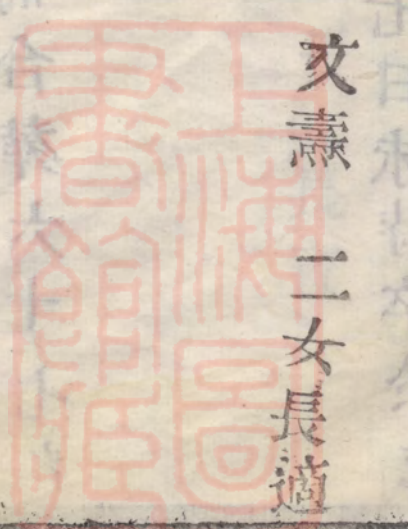 文燾 二女長適
上海圖
書館𧵍